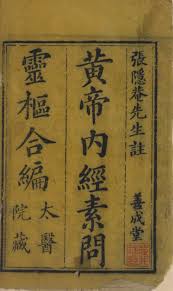 張隱菴先生註
善成堂
黄帝內經素問
靈樞合編
太醫
院藏